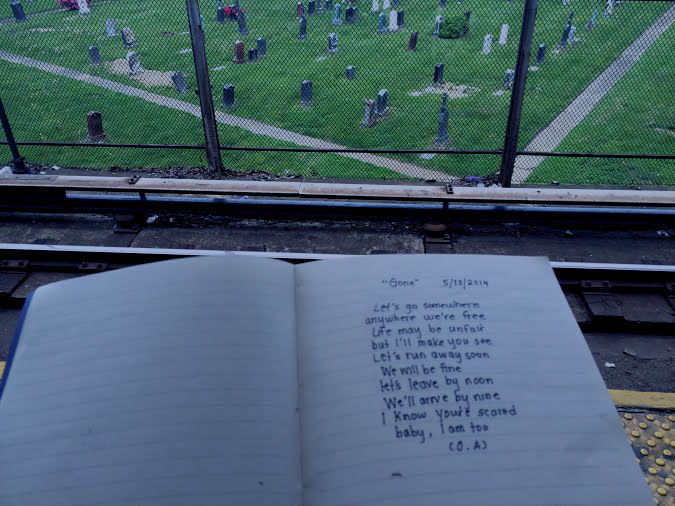 "Gone" 5/13/2014
Let's go somewhere
anywhere we're free
Life may be unfair
but I'll make you see
Let's run away soon
We will be fine
let's leave by noon
We'll arrive by nine
I know you're scared
baby, I am too
(O.A)